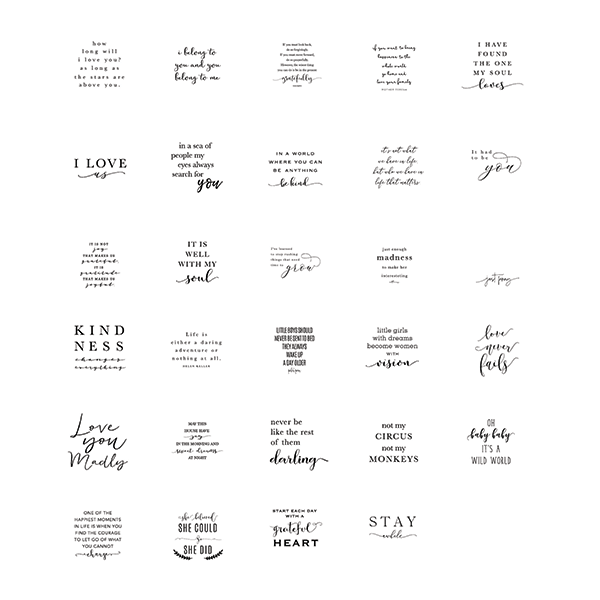 how
long will
i love you?
as long as
the stars are
above you.
i belong to
you and you
belong to me
If you must look back,
do so forgivingly.
If you must move forward,
do so prayerfully.
However, the wisest thing
you can do is be in the present
gratefully
if you want to bring
happiness to the
whole world
go home and
love your family
MOTHER TERESA
I HAVE
FOUND
THE ONE
MY SOUL
loves
I LOVE
us
in a sea of
people my
eyes always
search for
you
IN A WORLD
WHERE YOU CAN
BE ANYTHING
be kind
it's not what
we have in life
but who we have in
life that matters
It had
to be
you
IT IS NOT
joy
THAT MAKES US
grateful
IT IS
gratitude
THAT MAKES US
joyful
IT IS
WELL
WITH MY
soul
I've learned
to stop rushing
things that need
time to
grow
just enough
madness
to make her
interesting
KIND
NESS
changes
everything
Life is
either a daring
adventure or
nothing at all.
HELEN KELLER
LITTLE BOYS SHOULD
NEVER BE SENT TO BED
THEY ALWAYS
WAKE UP
A DAY OLDER
peter pan
little girls
with dreams
become women
WITH
vision
love
never
fails
Love
you
Madly
MAY THIS
HOUSE HAVE
joy
IN THE MORNING AND
sweet dreams
AT NIGHT
never be
like the rest
of them
darling
not my
CIRCUS
not my
MONKEYS
OH
baby baby
IT'S A
WILD WORLD
ONE OF THE
HAPPIEST MOMENTS
IN LIFE IS WHEN YOU
FIND THE COURAGE
TO LET GO OF WHAT
YOU CANNOT
change
she believed
SHE COULD
so
SHE DID
START EACH DAY
WITH A
grateful
HEART
STAY
awhile